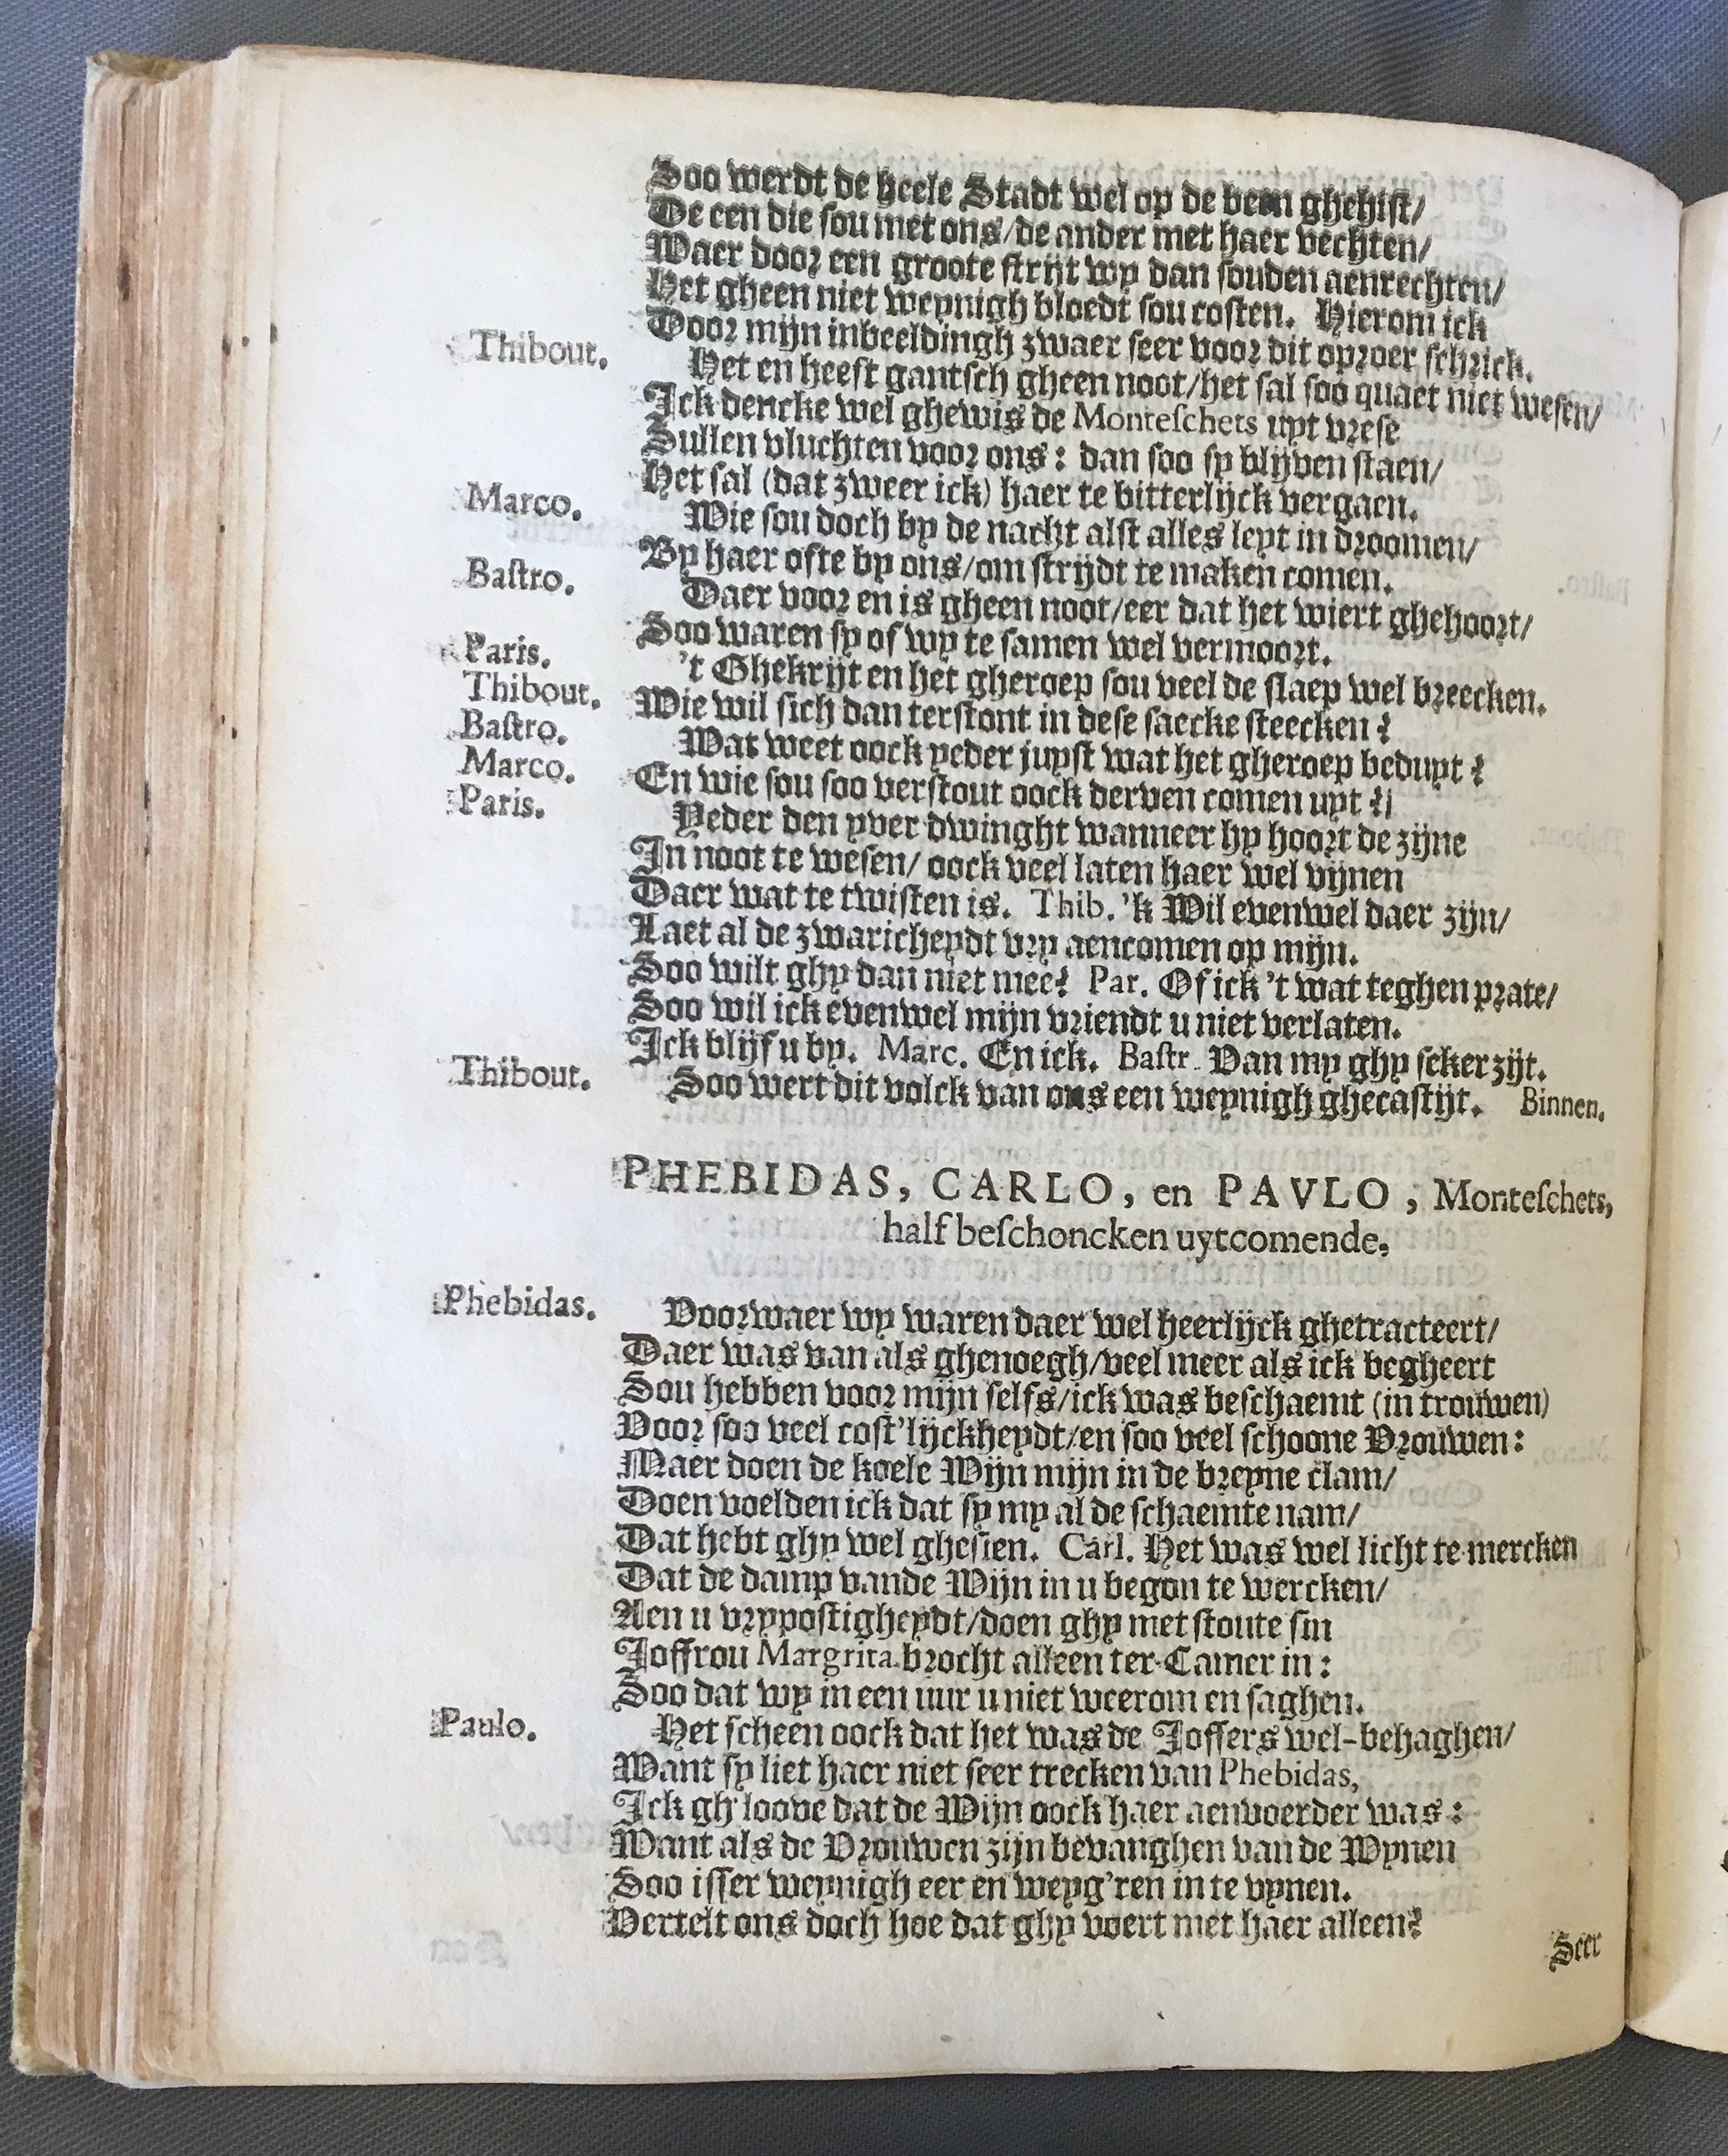 Soo werdt de heele Stadt wel op de been ghehist/
De een die sou met ons/de ander met haer vechten/
Waer door een groote strijt wy dan souden aenrechten/
Het gheen niet weynigh bloedt sou costen. Hierom ick
Door mijn inbeeldingh zwaer seer voor dit oproer schrick.
Thibout. Het en heeft gantsch gheen noot/het sal soo quaet niet wesen/
Ick dencke wel ghewis de Monteschets uyt vrese
Sullen vluchten voor ons: dan soo sy blijven staen/
Het sal (dat zweer ick) haer te bitterlijck vergaen.
Marco. Wie sou doch by de nacht alst alles leyt in droomen/
By haer ofte by ons/om strijdt te maken comen.
Bastro. Daer voor en is gheen noot/eer dat het wiert ghehoort/
Soo waren sy of wy te samen wel vermoort.
Paris. 't Ghekrijt en het gheroep sou veel de slaep wel breecken.
Thibout. Wie wil sich dan terstont in dese saecke steecken?
Bastro. Wat weet oock yeder juyst wat het gheroep beduyt?
Marco. En wie sou soo verstout oock derven comen uyt?
Paris. Yeder den yver dwinght wanneer hy hoort de zijne
In noot te wesen/ oock veel laten haer wel vijnen
Daer wat te twisten is. Thib. 'k Wil evenwel daer zijn/
Laet al de zwaricheydt vry aencomen op mijn.
Soo wilt ghy dan niet mee? Par. Of ick 't wat teghen prate/
Soo wil ick evenwel mijn vriendt u niet verlaten.
Ick blijf u by. Marc. En ick. Bastr. Van my ghy seker zijt.
Thibout. Soo wert dit volck van ons een weynigh ghecastijt. Binnen.
PHEBIDAS, CARLO, en PAVLO, Monteschets,
half beschoncken uytcomende.
Phebidas. Voorwaer wy waren daer wel heerlijck ghetracteert/
Daer was van als ghenoegh/veel meer als ick begheert
Sou hebben voor mijn selfs/ick was beschaemt (in trouwen)
Voor soo veel cost'lijckheydt/en soo veel schoone Vrouwen:
Maer doen de koele Wijn mijn in de breyne clam/
Doen voelden ick dat sy my al de schaemte nam/
Dat hebt ghy wel ghesien. Carl. Het was wel licht te mercken
Dat de damp vande Wijn in u begon te wercken/
Aen u vrypostigheydt/doen ghy met stoute sin
Joffrou Margrita brocht alleen ter Camer in:
Soo dat wy in een uur u niet weerom en saghen.
Paulo. Het scheen oock dat het was de Joffers wel-behaghen/
Want sy liet haer niet seer trecken van Phebidas,
Ick gh'loove dat de Wijn oock haer aenvoerder was:
Want als de Vrouwen zijn bevanghen van de Wynen
Soo isser weynigh eer en weyg'ren in te vynen.
Vertelt ons doch hoe dat ghy voert met haer alleen?
Seer